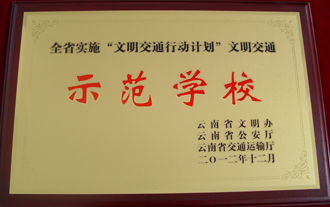 全省实施“文明交通行动计划”文明交通
示范学校
云南省文明办
云南省公安厅
云南省交通运输厅
二〇一二年十二月